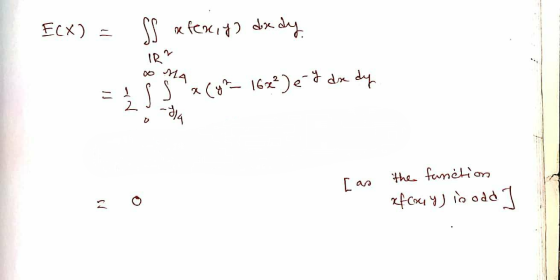 E(X) = ∬_{ℝ²} x f(x, y) dx dy.
= 1/2 ∫_0^∞ ∫_{-y/4}^{y/4} x (y² - 16x²) e^{-y} dx dy
= 0 [as the function xf(x, y) is odd]